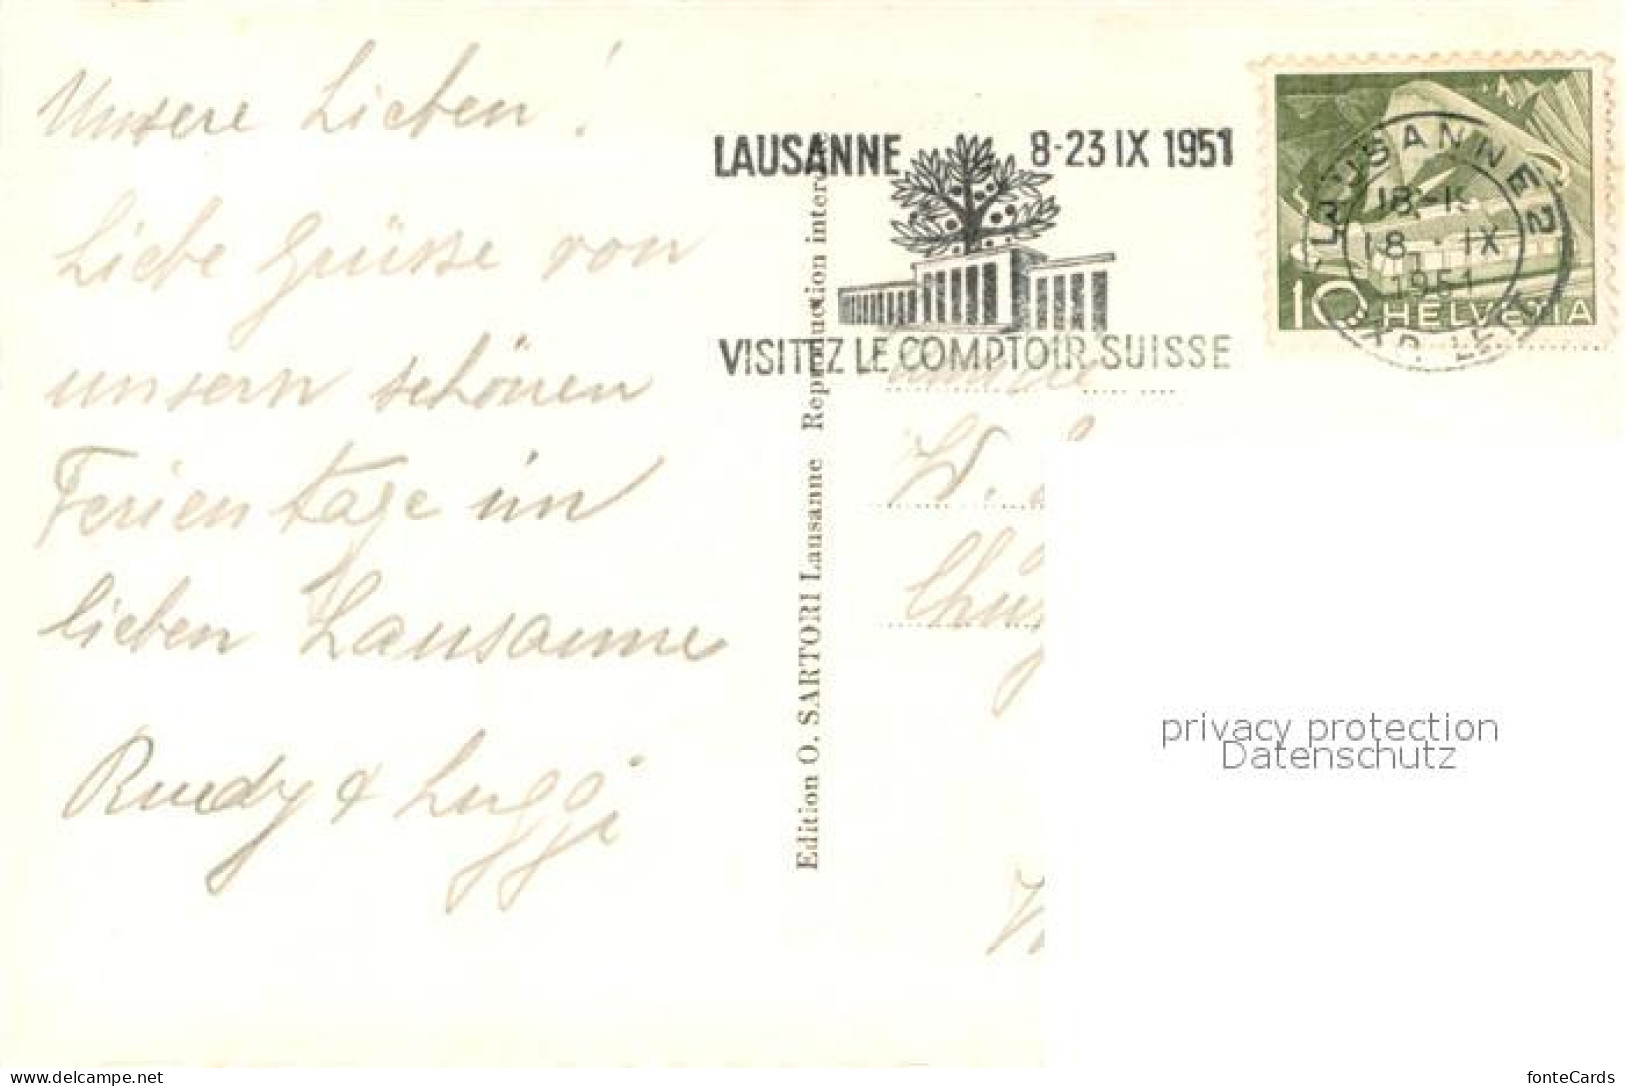 Unsere Lieben!
Liebe Grüsse von
unsern schönen
Ferientage im
lieben Lausanne
Ruedy & Luggi
Edition O. SARTORI Lausanne Reproduction interdite
LAUSANNE 8-23 IX 1951
VISITEZ LE COMPTOIR SUISSE
LAUSANNE 2
18.IX
1951
10 HELVETIA
Familie
W.
privacy protection
Datenschutz
delcampe.net
fonteCards